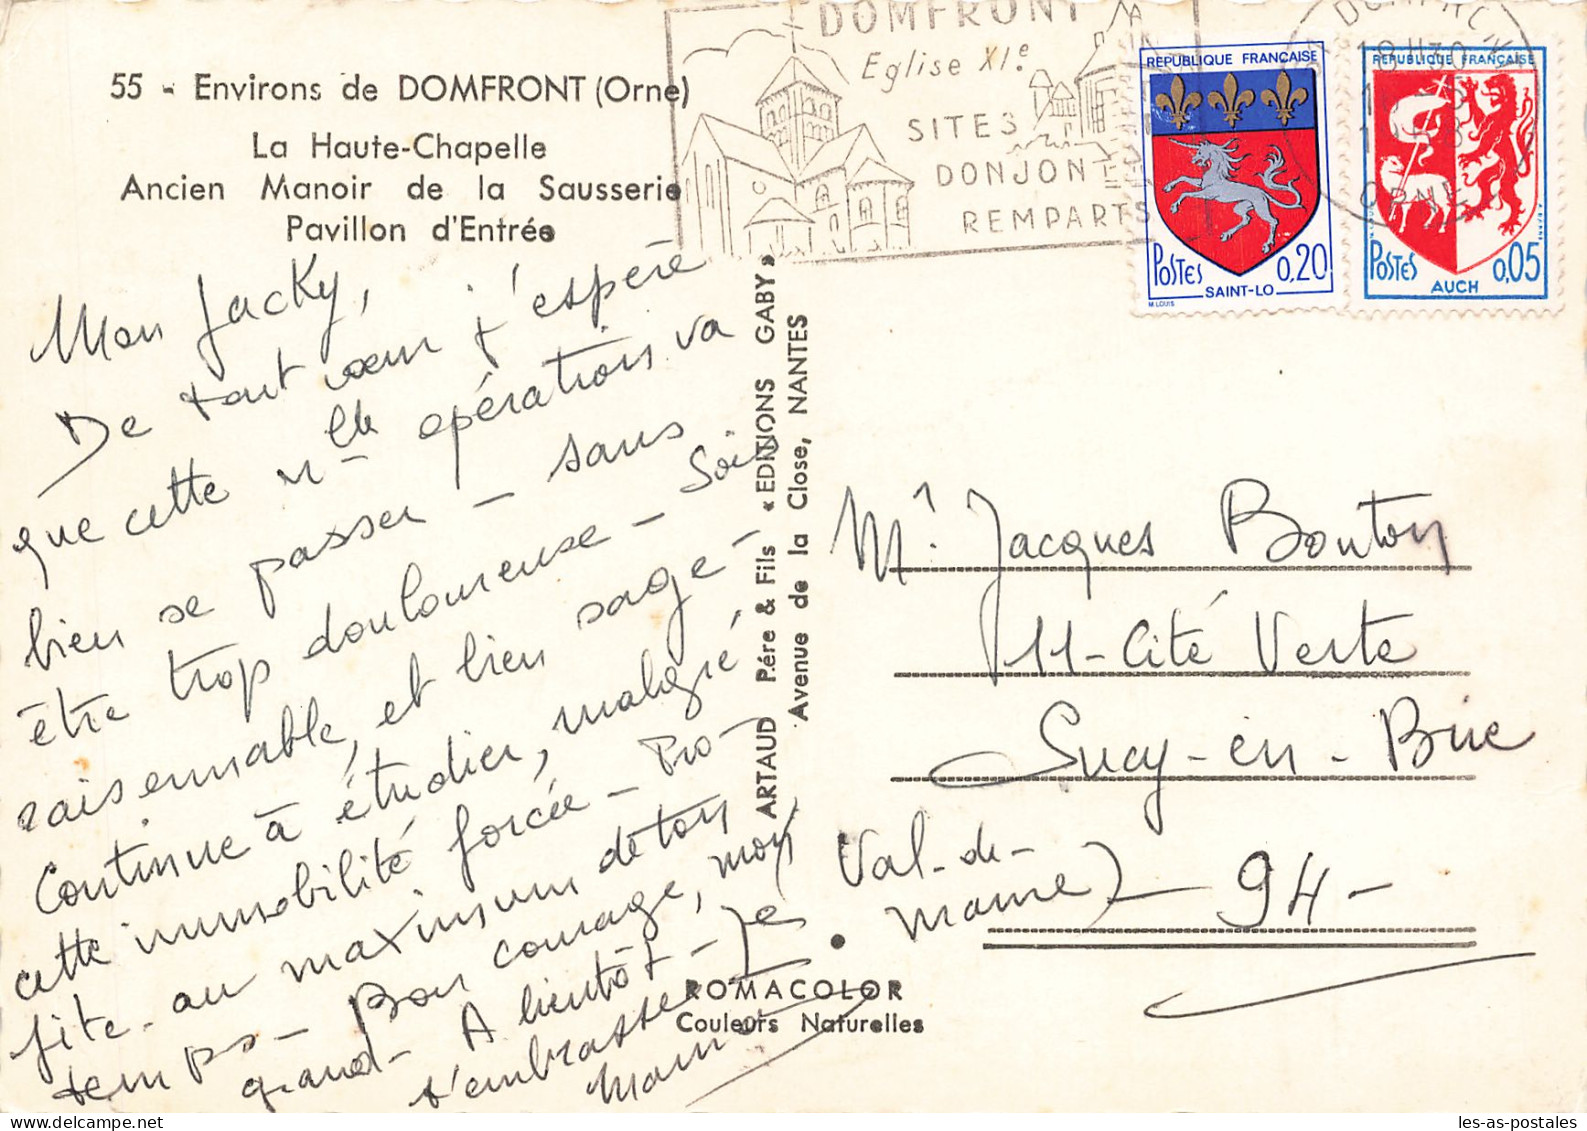 55 - Environs de DOMFRONT (Orne)
La Haute-Chapelle
Ancien Manoir de la Sausserie
Pavillon d'Entrée
DOMFRONT
Eglise XIe.
SITES
DONJON
REMPARTS
REPUBLIQUE FRANÇAISE
POSTES 0,20
SAINT-LO
M. LOUIS
DOMFRONT
18 H30
ORNE
REPUBLIQUE FRANÇAISE
POSTES 0,05
AUCH
Mon Jacky,
De tout cœur j'espère
que cette nlle opération va
bien se passer - sans
être trop douloureuse - Sois
raisonnable, et bien sage -
Continue à étudier, malgré
cette immobilité forcée - Pro-
fite au maximum de ton
temps - Bon courage, mon
grand - A bientôt - Je
t'embrasse
Mam
ARTAUD Pére & Fils « EDITIONS GABY »
Avenue de la Close, NANTES
Mr. Jacques Bouton
11 - Cité Verte
Sucy-en-Brie
Val-de-
Marne) 94 -
ROMACOLOR
Couleurs Naturelles
les-as-postales